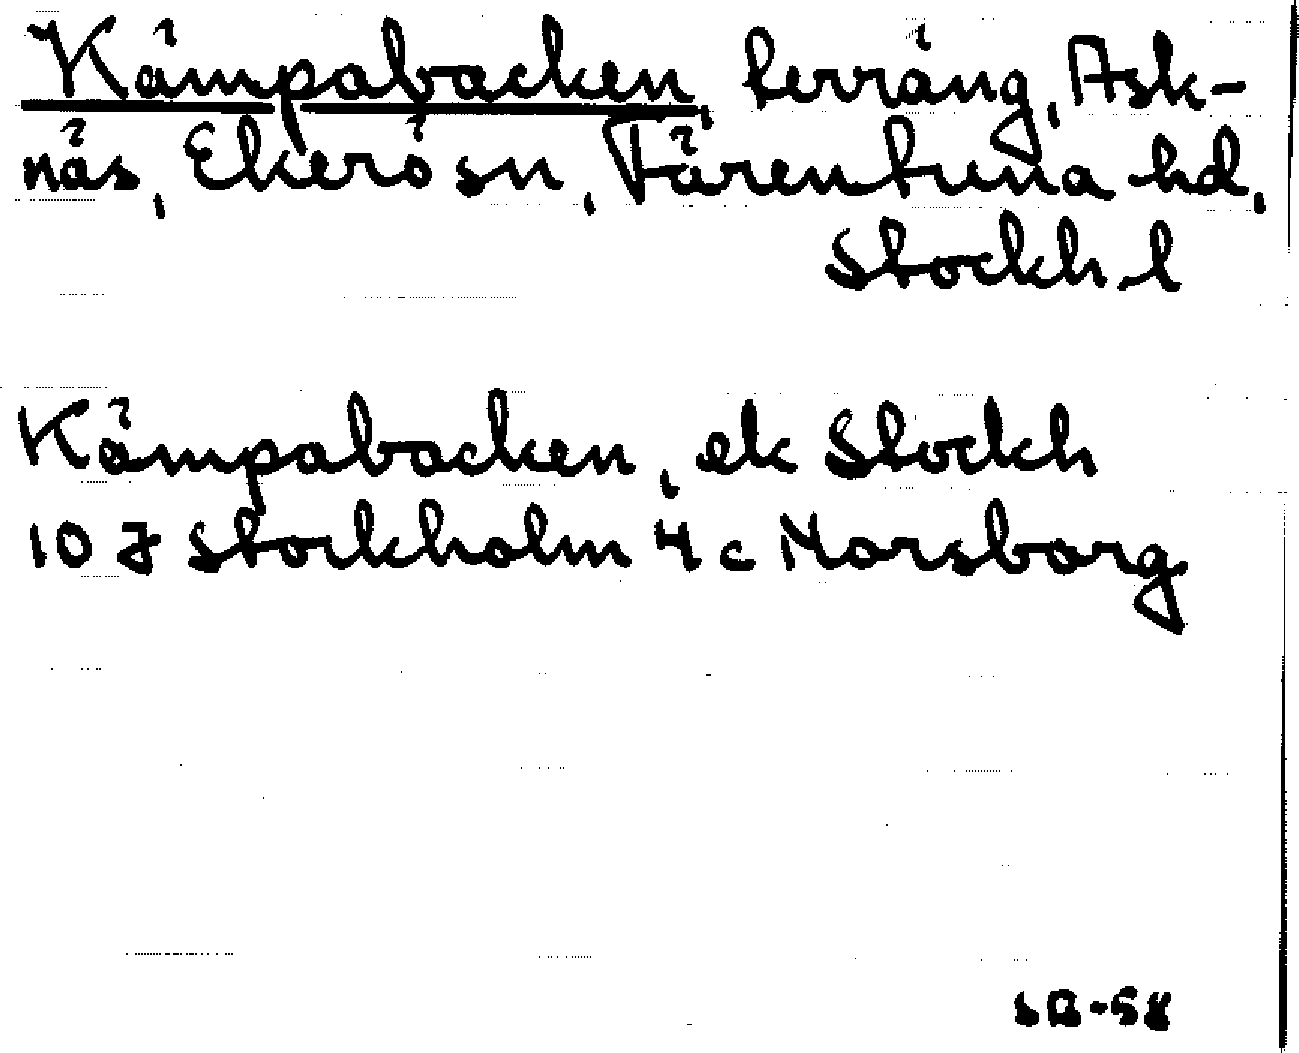 Kämpabacken, terräng, Ask-
näs, Ekerö sn, Färentuna hd,
Stockh l
Kämpabacken, ek Stockh
10 J Stockholm 4 c Norsborg
SB-58